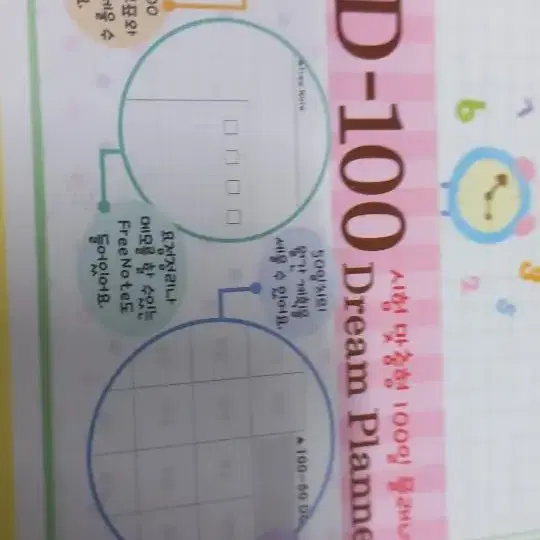 D-100 Dream Planne
시험 맞춤형 100일 플래너
50일치의
월간 계획을
세울 수 있어요.
▲100-60 DA
▲Free Note
요점정리나
메모를 할 수있는
FreeNote도
들어있어요.
6
3
2
8